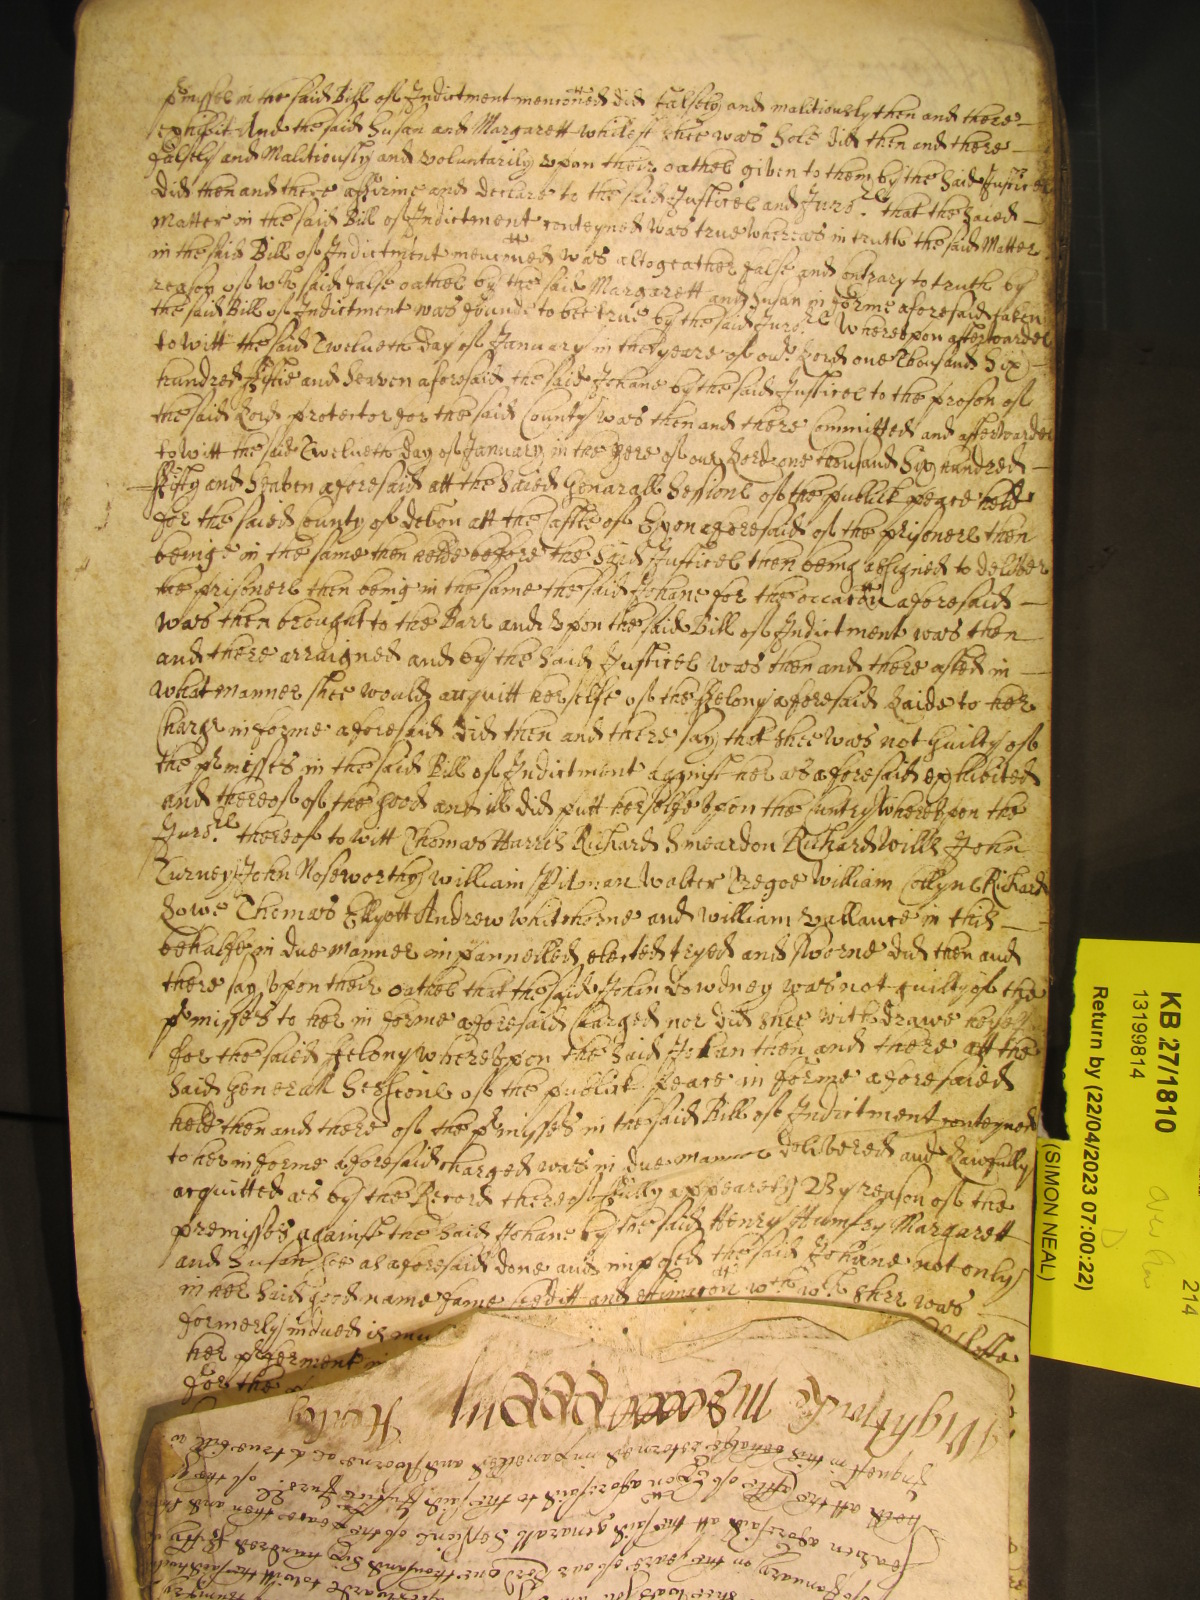 p̄misses in the said Bill of Indictment mencõned did falsely and malitiously then and there
exhibit And the said Susan and Margarett whilest shee was sole did then and there
falsely and Malitiously and voluntarily upon their oathes given to them by the said Justices
did then and there affirme and declare to the said Justices and Juro:rs that the saied
Matter in the said Bill of Indictment conteyned was true whereas in truth the said Matter
in the said Bill of Indictment mencõned was altogeather false and contrary to truth by
reason of wch said false oathes by the said Margarett and Susan in forme aforesaid taken
the said Bill of Indictment was found to bee true by the said Juro:rs Whereupon afterwardes
to witt the said Twelueth day of January in the yeare of our Lord one Thousand Six
hundred Fiftie and Seaven aforesaid the said Johane by the said Justices to the prison of
the said Lord protector for the said County was then and there Committed and afterwardes
to witt the said Twelueth day of January in the yere of our Lord one thousand Six hundred
Fifty and Seaven aforesaid att the saied Generall Sessions of the publick peace held
for the saied County of Devon att the Castle of Exon aforesaid of the prisoners then
being in the same then helde before the said Justices then being assigned to deliver
the prisoners then being in the same the said Johane for the occacõn aforesaid
was then brought to the Barr and Upon the said Bill of Indictment was then
and there arraigned and by the said Justices was then and there asked in
what manner shee would acquitt herselfe of the Felony aforesaid Laide to her
Charge in forme aforesaid did then and there say that shee was not Guilty of
the p̄misses in the said Bill of Indictment against her as aforesaid exhibited
and thereof of the good and ill did putt herselfe Upon the Cuntry Whereupon the
Juro:rs thereof to witt Thomas Harris Richard Smeardon Richard Wills John
Turney John Noseworthy William Pitman Walter Tregoe William Collyns Richard
Lowe Thomas Ellyott Andrew Whitehorne and William Vallance in this
behalfe in due manner impannelled elected tryed and sworne did then and
there say Upon their oathes that the said Johan Lowdney was not guilty of the
p̄misses to her in forme aforesaid charged nor did shee withdrawe herself
for the saied felony whereupon the said Johan then and there att the
said Generall Sessions of the publick Peace in forme aforesaied
held then and there of the p̄misses in the said Bill of Indictment conteyned
to her in forme aforesaid charged was in due manner delivered and Lawfully
acquitted as by the Record thereof fully appeareth By reason of the
premisses against the said Johane by the said Henry Humfry Margarett
and Susan soe as aforesaid done and imposed the said Johane not only
in her said good name fame creditt and estimacõn wth wch shee was
formerly indued is mu
her preferment in
for the
Wightwicke Henley
Inquest in this behalfe retorned impanelled and sworne as a true bill
held att the Castle of Exon aforesaid to the said Justices Juro:rs of the
Seaven aforesaid att the said generall Sessions of the peace then and
of January in the yeare of our Lord one thousand Six hundred Fifty
KB 27/1810
13199814
Return by (22/04/2023 07:00:22)
(SIMON NEAL)
214
D